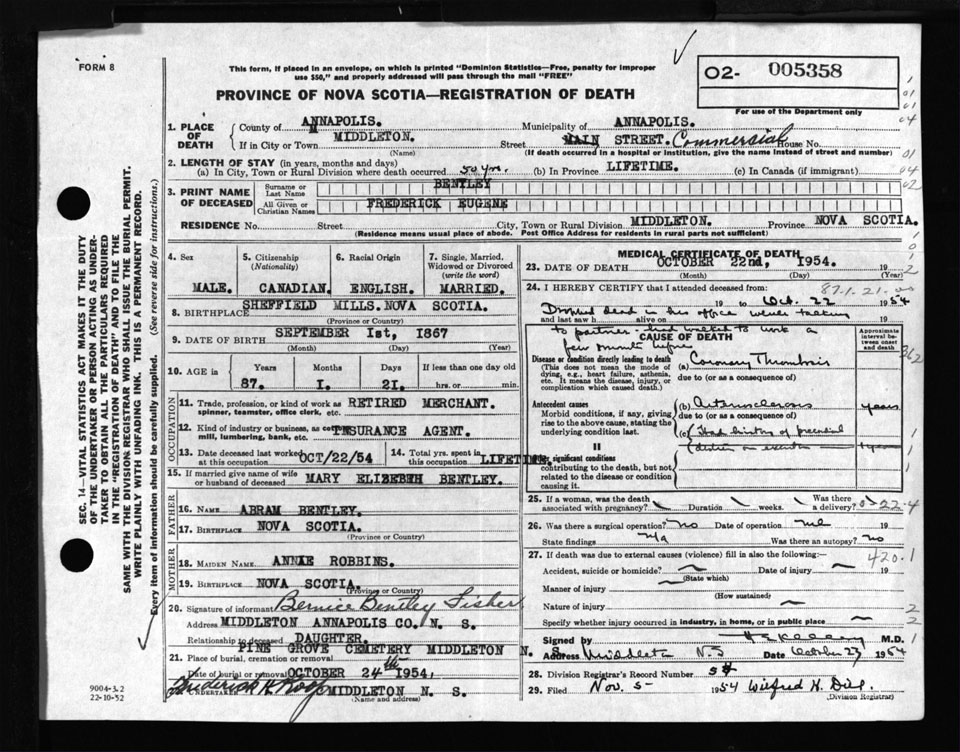 FORM 8
This form, if placed in an envelope, on which is printed "Dominion Statistics—Free, penalty for improper
use $50," and properly addressed will pass through the mail "FREE"
O2- 005358
For use of the Department only
PROVINCE OF NOVA SCOTIA—REGISTRATION OF DEATH
1. PLACE OF DEATH
County of ANNAPOLIS. Municipality of ANNAPOLIS.
If in City or Town MIDDLETON. Street MAIN STREET. Commercial House No.
(Name) (If death occurred in a hospital or institution, give the name instead of street and number)
2. LENGTH OF STAY (in years, months and days)
(a) In City, Town or Rural Division where death occurred 50 yrs. (b) In Province LIFETIME. (c) In Canada (if immigrant)
3. PRINT NAME OF DECEASED
Surname or Last Name BENTLEY
All Given or Christian Names FREDERICK EUGENE
RESIDENCE No. Street City, Town or Rural Division MIDDLETON. Province NOVA SCOTIA.
(Residence means usual place of abode. Post Office Address for residents in rural parts not sufficient)
4. Sex MALE.
5. Citizenship (Nationality) CANADIAN.
6. Racial Origin ENGLISH.
7. Single, Married, Widowed or Divorced (write the word) MARRIED.
8. BIRTHPLACE SHEFFIELD MILLS. NOVA SCOTIA.
(Province or Country)
9. DATE OF BIRTH SEPTEMBER 1st, 1867
(Month) (Day) (Year)
10. AGE in Years Months Days If less than one day old
87. 1. 21. hrs. or min.
OCCUPATION
11. Trade, profession, or kind of work as spinner, teamster, office clerk, etc. RETIRED MERCHANT.
12. Kind of industry or business, as cotton mill, lumbering, bank, etc. INSURANCE AGENT.
13. Date deceased last worked at this occupation OCT/22/54
14. Total yrs. spent in this occupation LIFETIME
15. If married give name of wife or husband of deceased MARY ELIZEBETH BENTLEY.
FATHER
16. Name ABRAM BENTLEY.
17. Birthplace NOVA SCOTIA.
(Province or Country)
MOTHER
18. Maiden Name ANNIE ROBBINS.
19. Birthplace NOVA SCOTIA.
(Province or Country)
20. Signature of informant Bernice Bentley Fisher
Address MIDDLETON ANNAPOLIS CO. N. S.
Relationship to deceased DAUGHTER.
PINE GROVE CEMETERY MIDDLETON N. S.
21. Place of burial, cremation or removal
Date of burial or removal OCTOBER 24th 1954,
Frederick H. Roop
UNDERTAKER MIDDLETON N. S.
(Name and address)
MEDICAL CERTIFICATE OF DEATH
23. DATE OF DEATH OCTOBER 22nd, 1954. 19
(Month) (Day) (Year)
24. I HEREBY CERTIFY that I attended deceased from:
87.1.21.
19 to Oct. 22 1954
and last saw h alive on 19
Dropped dead in his office while talking
to partner - had walked to work a
few minutes before
CAUSE OF DEATH
Approximate interval between onset and death
Disease or condition directly leading to death
(This does not mean the mode of dying, e.g., heart failure, asthenia, etc. It means the disease, injury, or complication which caused death.)
(a) Coronary Thrombosis
due to (or as a consequence of)
Antecedent causes
Morbid conditions, if any, giving rise to the above cause, stating the underlying condition last.
(b) Arteriosclerosis years
due to (or as a consequence of)
(c) Had history of precordial
distress on exertion
II
Other significant conditions contributing to the death, but not related to the disease or condition causing it.
25. If a woman, was the death associated with pregnancy? Duration weeks. Was there a delivery?
26. Was there a surgical operation? no Date of operation nil
State findings n/a Was there an autopsy? no
27. If death was due to external causes (violence) fill in also the following: 420.1
Accident, suicide or homicide? Date of injury 19
(State which)
Manner of injury
(How sustained)
Nature of injury
Specify whether injury occurred in industry, in home, or in public place
Signed by M.D.
Address Middleton N.S Date October 23 1954
28. Division Registrar's Record Number
29. Filed Nov. 5 - 1954 Wilfred H. Dill.
(Division Registrar)
SEC. 14—VITAL STATISTICS ACT MAKES IT THE DUTY
OF THE UNDERTAKER OR PERSON ACTING AS UNDER-
TAKER TO OBTAIN ALL THE PARTICULARS REQUIRED
IN THE "REGISTRATION OF DEATH" AND TO FILE THE
SAME WITH THE DIVISION REGISTRAR WHO SHALL ISSUE THE BURIAL PERMIT.
WRITE PLAINLY WITH UNFADING INK. THIS IS A PERMANENT RECORD.
Every item of information should be carefully supplied. (See reverse side for instructions.)
9004-3.2
22-10-52